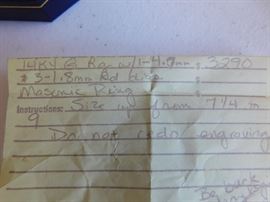 14KY G Ring w/1-4.7mm 3290
& 3-1.8mm Rd
Masonic Ring
Instructions: Size up from 7 1/4 to
9
Do not redo engraving
Be back